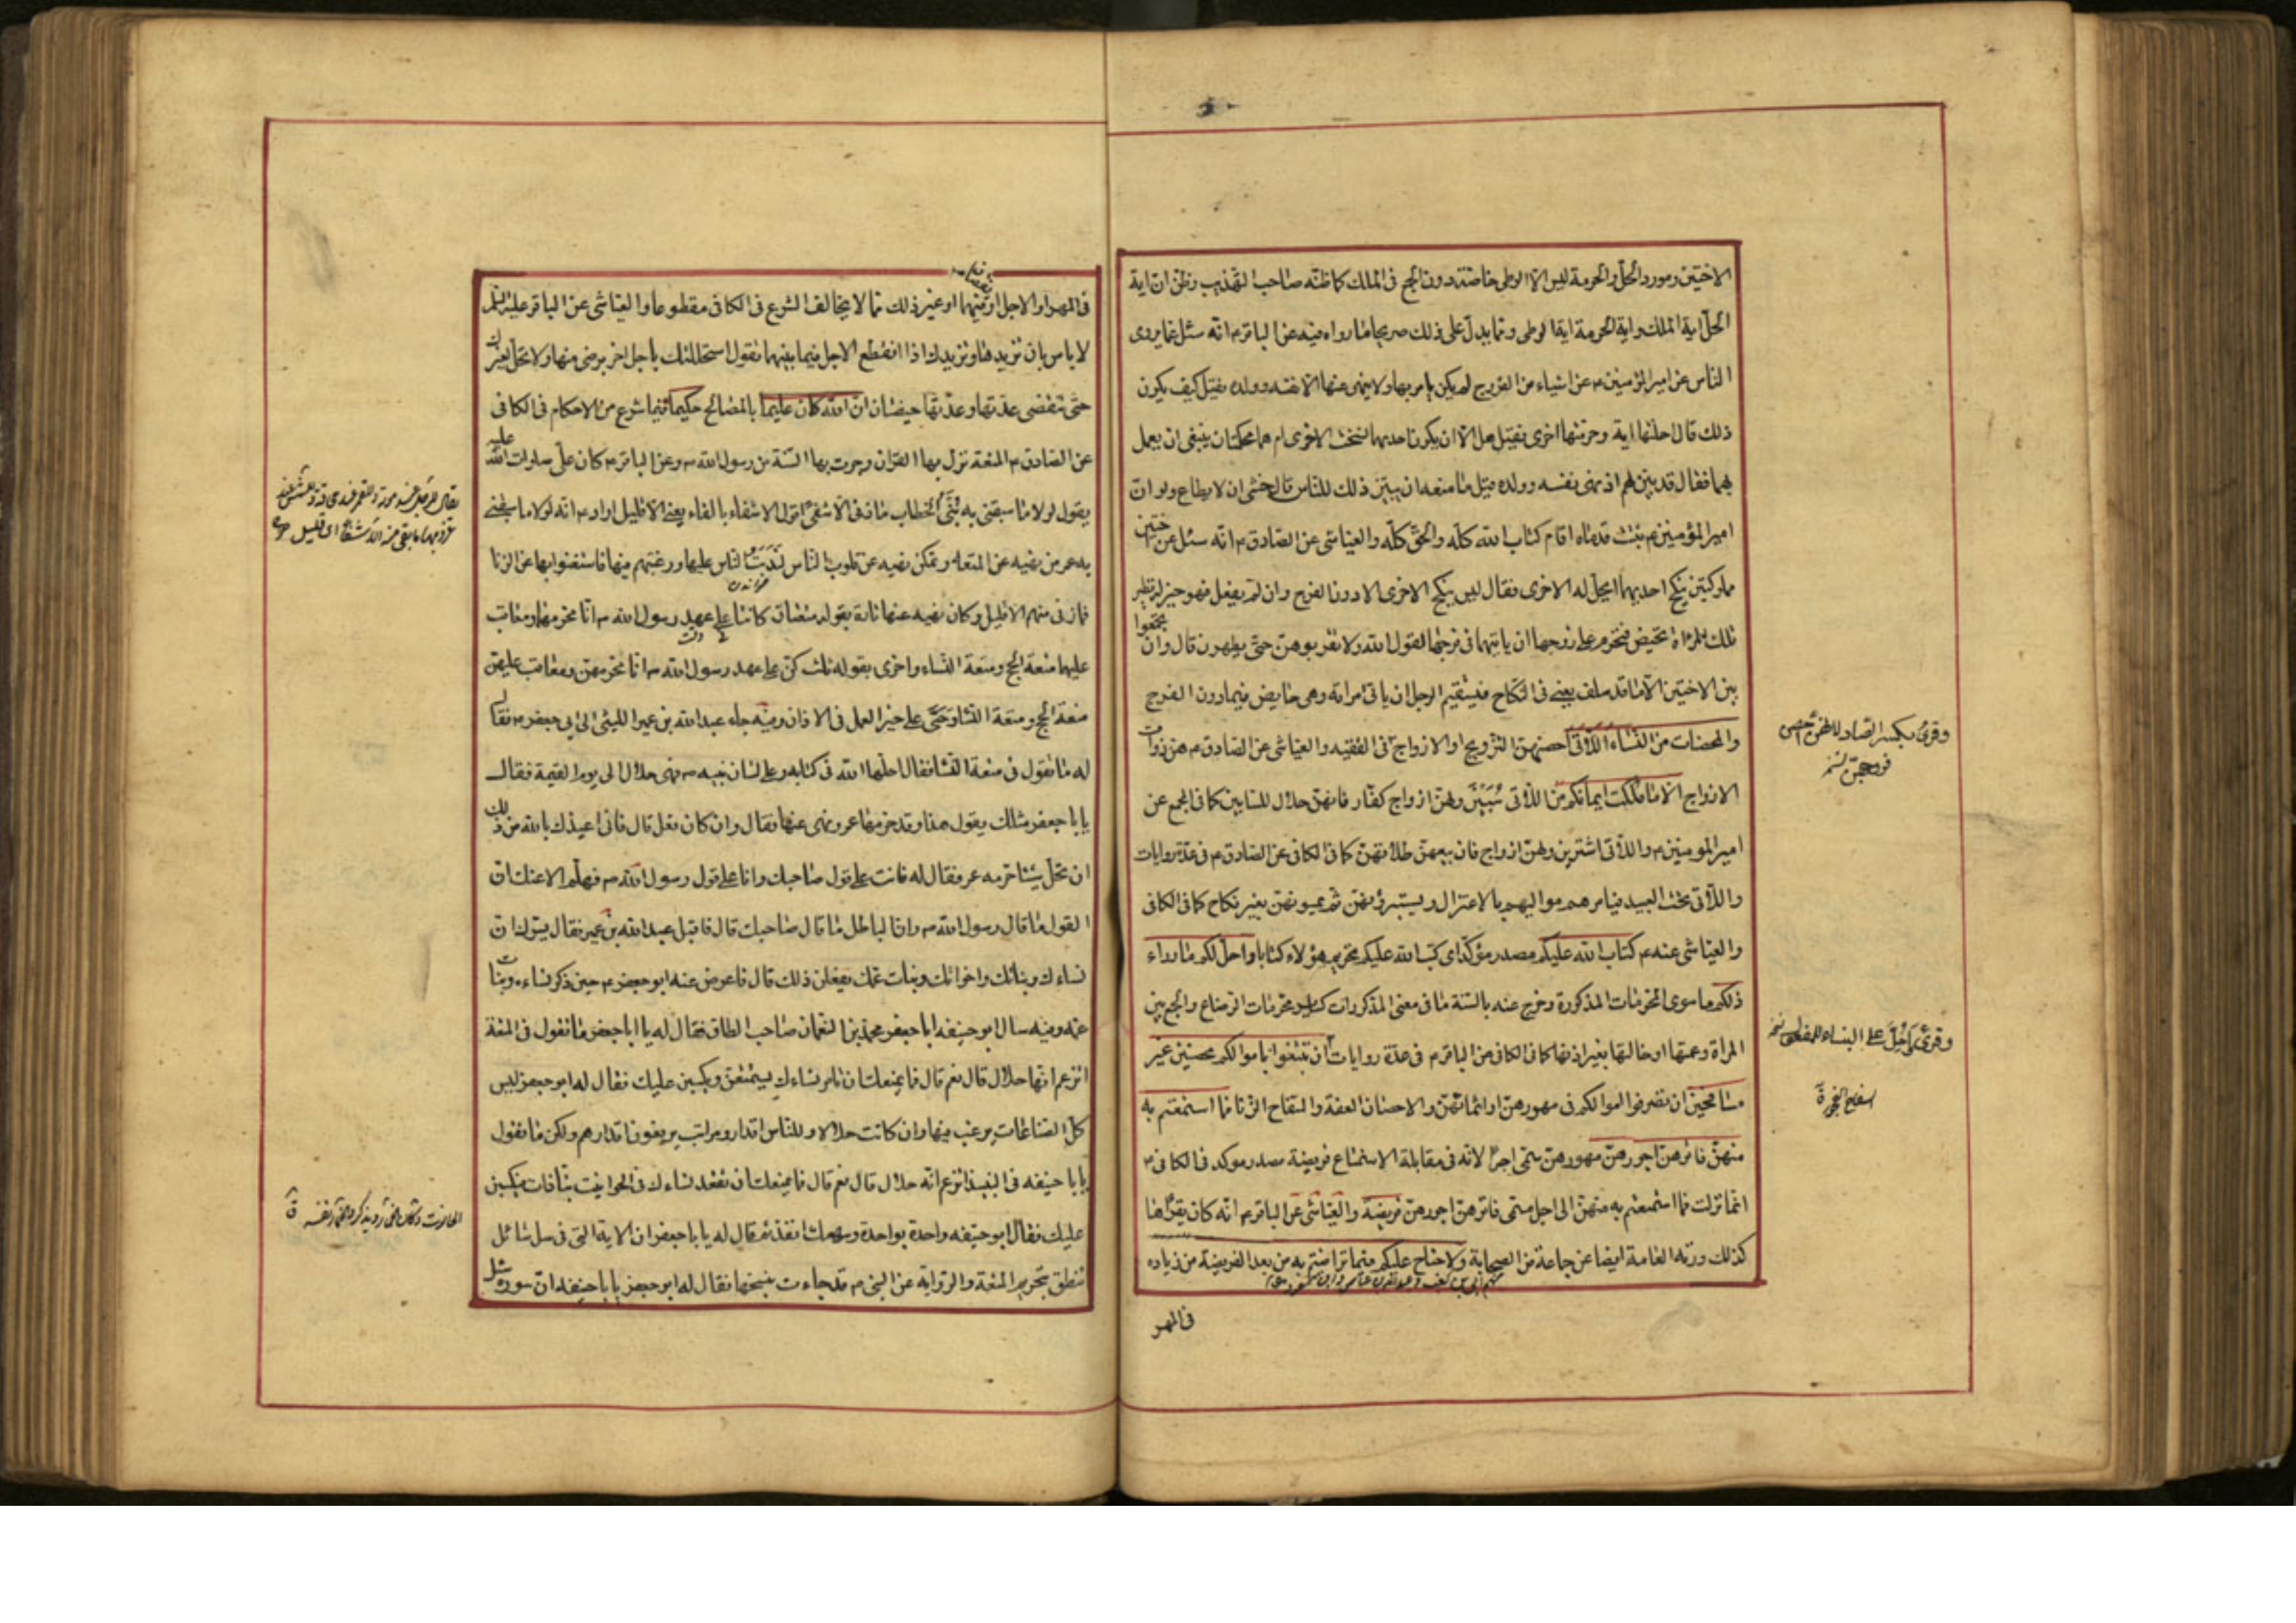 الاختين ومورد الحل والحرمة ليس الا الوطى خاصة دون الجمع فى الملك كما ظنه صاحب التهذيب وظن ان اية
الحل اية الملك واية الحرمة اية الوطى ومما يدل على ذلك صريحا ما رواه فيه عن الباقر م انه سئل عما يروى
الناس عن امير المؤمنين م عن اشياء من الفروج لم يكن يامر بها ولا ينهى عنها الا نفسه وولده فقيل كيف يكون
ذلك قال احلتها اية وحرمتها اخرى فقيل هل الا ان يكون احديهما نسخت الاخرى ام هما محكمتان ينبغى ان يعمل
بهما فقال قد بين لهم اذ نهى نفسه وولده قيل ما منعه ان يبين ذلك للناس قال خشى ان لا يطاع ولو ان
امير المؤمنين م ثبتت قدماه اقام كتاب الله كله والحق كله والعياشى عن الصادق م انه سئل عن اختين
مملوكتين ينكح احديهما ايحل له الاخرى فقال ليس ينكح الاخرى الا دون الفرج وان لم يفعل فهو خير له نظير
تلك المراة تحيض فتحرم على زوجها ان ياتيها فى فرجها لقول الله ولا تقربوهن حتى يطهرن قال وان تجمعوا
بين الاختين الا ما قد سلف يعنى فى النكاح فيستقيم الرجل ان ياتى امراته وهى حايض فيما دون الفرج
والمحصنات من النساء اللاتى احصنهن التزويج او الازواج فى الفقيه والعياشى عن الصادق م هن ذوات
الازواج الا ما ملكت ايمانكم من اللاتى سبين ولهن ازواج كفار فانهن حلال للسابين كما فى المجمع عن
امير المومنين م واللاتى اشترين ولهن ازواج فان بيعهن طلاقهن كما فى الكافى عن الصادق م فى عدة روايات
واللاتى تحت العبيد فيامرهم مواليهم بالاعتزال ويستبرؤنهن ثم يمسونهن بغير نكاح كما فى الكافى
والعياشى عنه م كتاب الله عليكم مصدر مؤكد اى كتب الله عليكم تحريم هؤلاء كتابا واحل لكم ما وراء
ذلكم ما سوى المحرمات المذكورة وخرج عنه بالسنة ما فى معنى المذكورات كساير محرمات الرضاع والجمع بين
المراة وعمتها او خالتها بغير اذنها كما فى الكافى عن الباقر م فى عدة روايات ان تبتغوا باموالكم محصنين غير
مسافحين ان تصرفوا اموالكم فى مهورهن او اثمانهن والاحصان العفة والسفاح الزنا فما استمتعتم به
منهن فاتوهن اجورهن مهورهن سمى اجرا لانه فى مقابلة الاستمتاع فريضة مصدر موكد فى الكافى م
انما نزلت فما استمتعتم به منهن الى اجل مسمى فاتوهن اجورهن فريضة والعياشى عن الباقر م انه كان يقرأها
كذلك ورته العامة ايضا عن جماعة من الصحابة ولا جناح عليكم فيما تراضيتم به من بعد الفريضة من زياده
منهم ابى بن كعب وعبد الله بن عباس وابن مسعود
فى المهر
وقرئ بكسر الصاد لانهن احصن
فروجهن
وقرئ احل على البناء للمفعول
فى المهر او الاجل او فيهما او غير ذلك مما لا يخالف الشرع فى الكافى مقطوعا والعياشى عن الباقر عليه السلم
لا باس بان تزيدها وتزيدك اذا انقطع الاجل فيما بينهما تقول استحللتك باجل اخر برضى منها ولا تحل لغيرك
حتى تنقضى عدتها وعدتها حيضتان ان الله كان عليما بالمصالح حكيما فيما شرع من الاحكام فى الكافى
عن الصادق م المتعة نزل بها القران وجرت بها السنة من رسول الله ص وعن الباقر م كان على صلوات الله عليه
يقول لولا ما سبقنى به بنى الخطاب ما زنى الا شفى اقول الا شفاء بالفاء يعنى الا قليل اراد م انه لولا ما سبقنى
به عمر من نهيه عن المتعة وتمكن نهيه عن قلوب الناس لندبت الناس عليها ورغبتهم فيها فاستغنوا بها عن الزنا
فما زنى منهم الا قليل وكان نهيه عنها تارة بقوله متعتان كانتا على عهد رسول الله ص انا محرمهما ومعاقب
عليهما متعة الحج ومتعة النساء واخرى بقوله ثلث كن على عهد رسول الله ص انا محرمهن ومعاقب عليهن
متعة الحج ومتعة النساء وحى على خير العمل فى الاذان وفيه جاء عبد الله بن عمير الليثى الى ابى جعفر م فقال
له ما تقول فى متعة النساء فقال احلها الله فى كتابه وعلى لسان نبيه ص فهى حلال الى يوم القيمة فقال
يا با جعفر مثلك يقول هذا وقد حرمها عمر ونهى عنها فقال وان كان فعل قال فانى اعيذك بالله من ذلك
ان تحل شيئا حرمه عمر فقال له فانت على قول صاحبك وانا على قول رسول الله ص فهلم الاعنك ان
القول ما قال رسول الله ص وان الباطل ما قال صاحبك قال فاقبل عبد الله بن عمير فقال يسرك ان
نساءك وبناتك واخواتك وبنات عمك يفعلن ذلك قال فاعرض عنه ابو جعفر م حين ذكر نساءه وبنات
عمه وفيه سال ابو حنيفه ابا جعفر محمد بن النعمان صاحب الطاق فقال له يا ابا جعفر ما تقول فى المتعة
اتزعم انها حلال قال نعم قال فما يمنعك ان تامر نساءك يستمتعن ويكسبن عليك فقال له ابو جعفر ليس
كل الصناعات يرغب فيها وان كانت حلالا وللناس اقدار ومراتب يرفعون اقدارهم ولكن ما تقول
يا با حنيفه فى النبيذ اتزعم انه حلال قال نعم قال فما يمنعك ان تقعد نساءك فى الحوانيت نباذات فيكسبن
عليك فقال ابو حنيفه واحدة بواحدة وسهمك انفذ ثم قال له يا با جعفر ان الاية التى فى سال سائل
تنطق بتحريم المتعة والرواية عن النبى م قد جاءت بنسخها فقال له ابو جعفر يا با حنيفه ان سورة سال